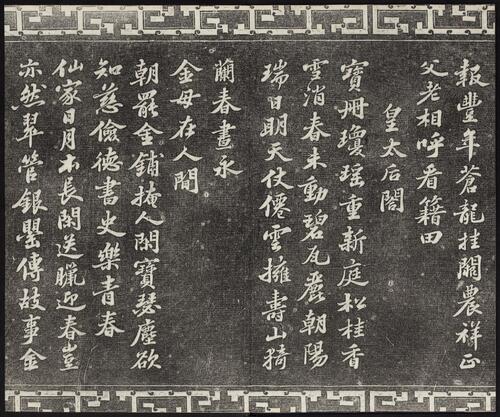 報豐年蒼龍挂闕農祥正
父老相呼看籍田
皇太后閣
寶冊瓊瑶重新庭松桂香
雪消春未動碧瓦麗朝陽
瑞日明天仗僊雲擁壽山猗
蘭春晝永
金母在人間
朝罷金鋪掩人閑寶瑟塵欲
知慈儉徳書史樂青春
仙家日月本長閑送臘迎春豈
亦然翠管銀罌傳故事金